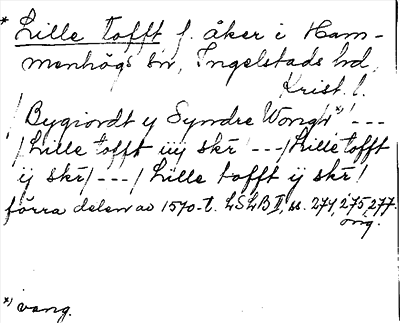 * Lille tofft f. åker i Ham-
menhögs sn, Ingelstads hd,
Krist. l.
/ Bygiordt y Syndre Wongh *) ---
/ Lille tofft iiij skr ---/ Lille tofft
ij skr /---/ Lille tofft ij skr /
förra delen av 1570-t. LSLB II, ss. 274, 275, 277.
orig.
*) vang.